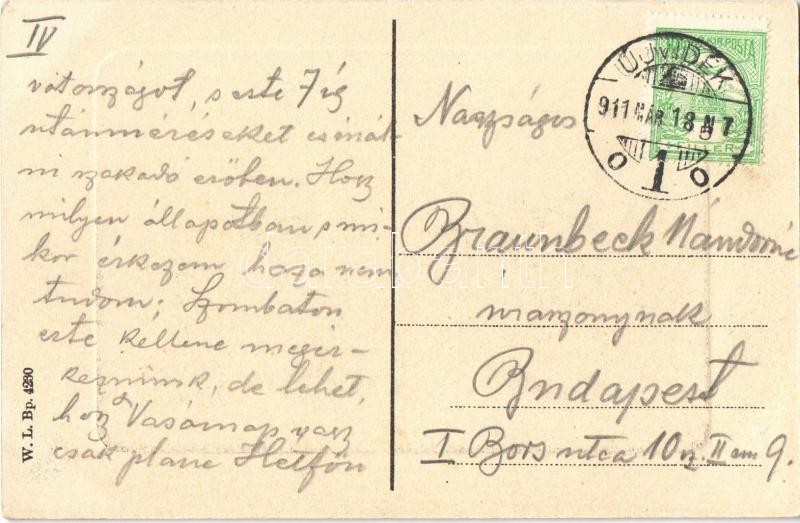 IV
vátországot, s este 7 ig
utánméréseket csinál-
ni szakadó esőben. Hogy
milyen állapotban s mi-
kor érkezem haza nem
tudom; Szombaton
este kellene megér-
keznünk, de lehet,
hogy Vasárnap vagy
csak plane Hétfőn
W. L. Bp. 4230
ÚJVIDÉK
911 MÁR 18 N 7
1
Nagyságos
Braunbeck Nándorné
úrasszonynak
Budapest
I Bors utca 10 sz. II em 9.
darabanth